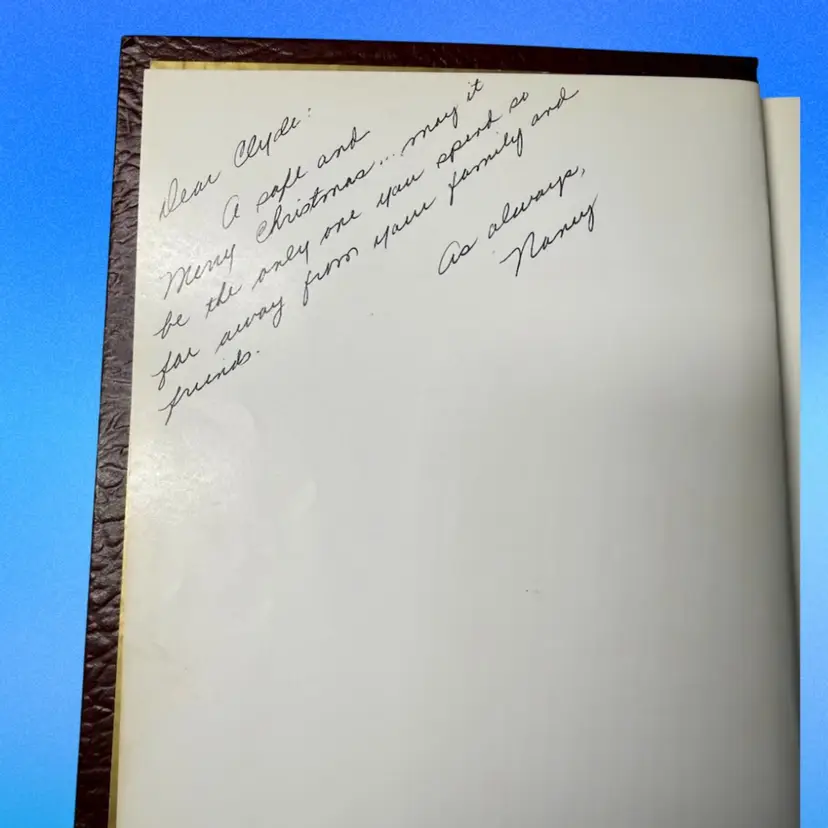 Dear Clyde:
A safe and
Merry Christmas... may it
be the only one you spend so
far away from your family and
friends.
As always,
Nancy